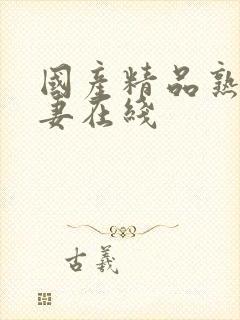 國產精品熟
妻在綫
古羲